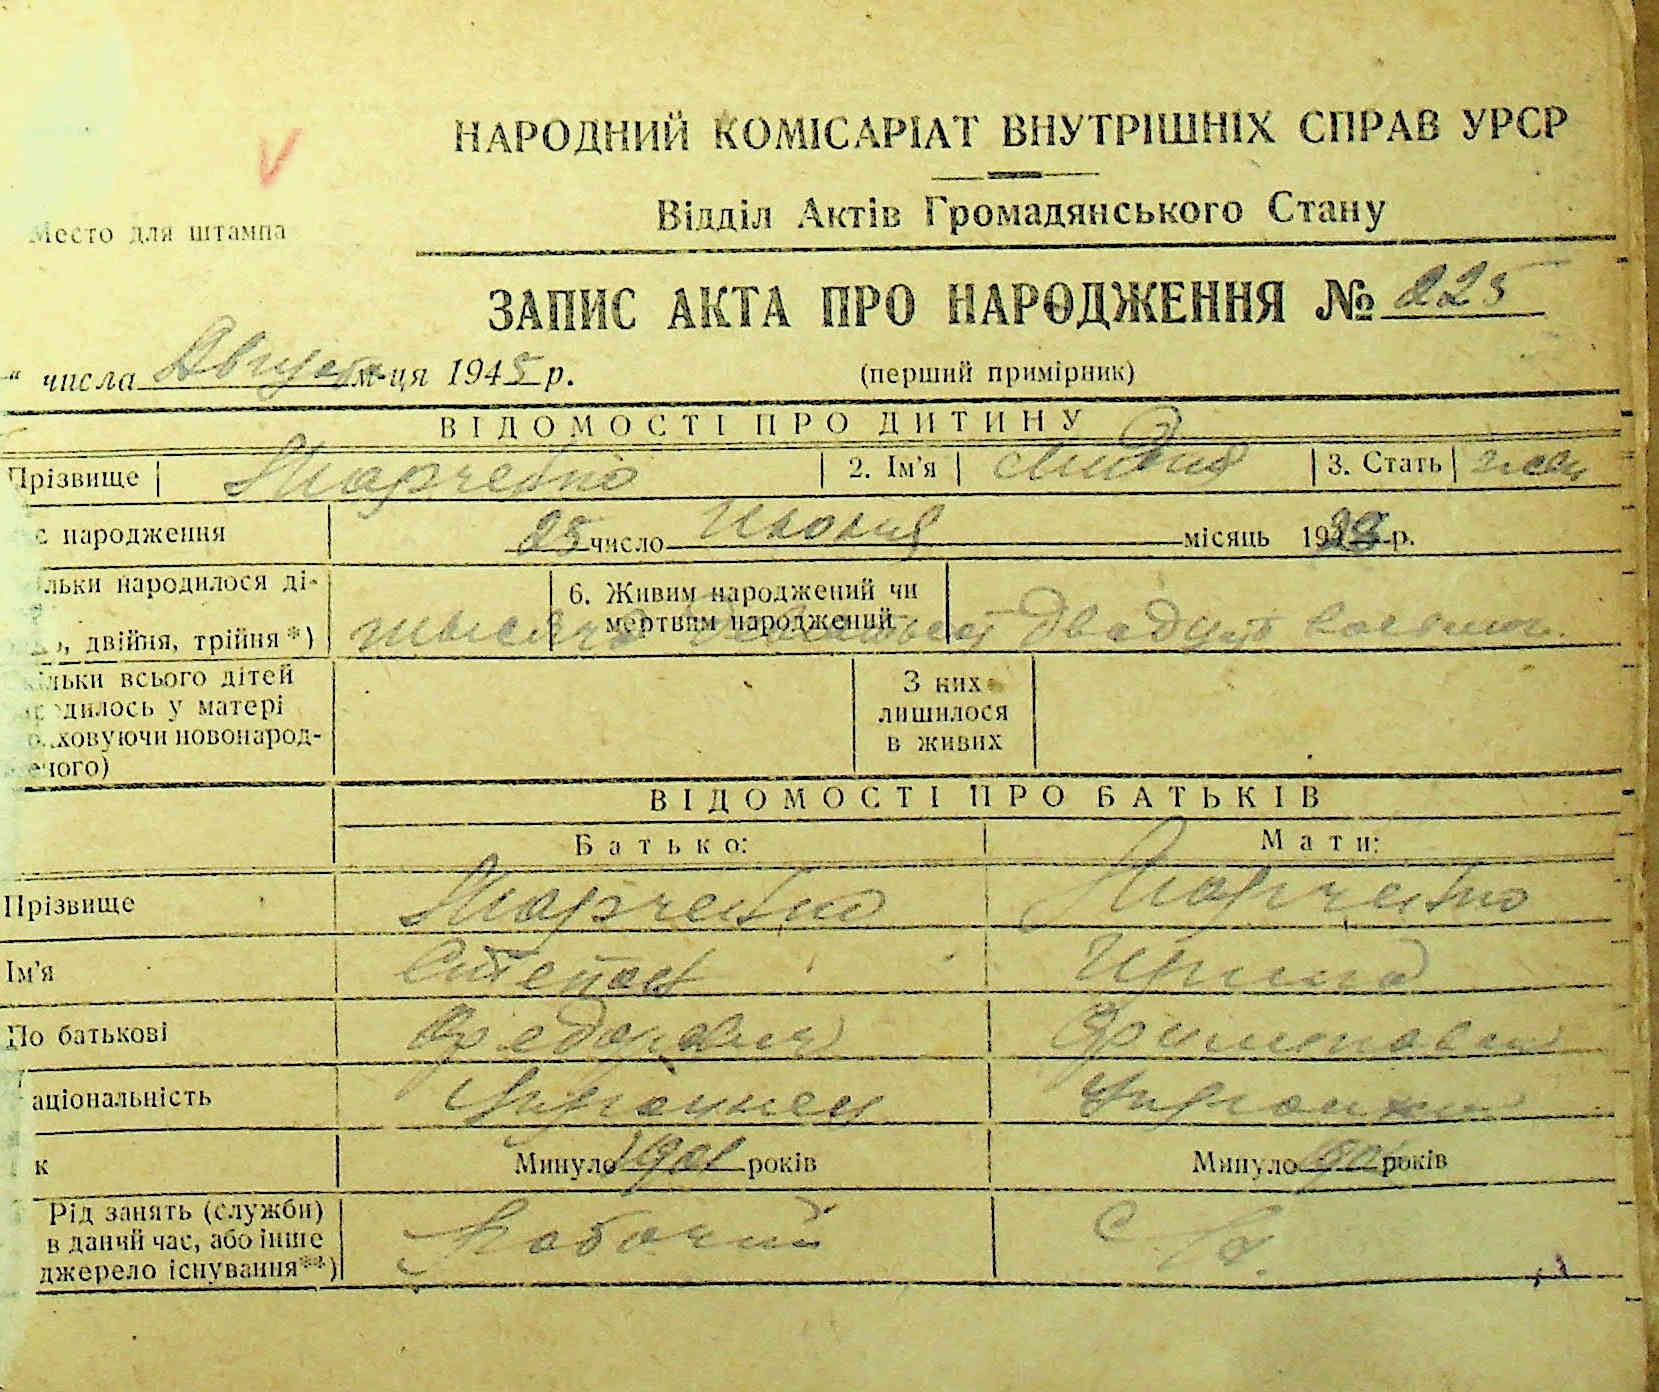 НАРОДНИЙ КОМІСАРІАТ ВНУТРІШНІХ СПРАВ УРСР
Место для штампа
Відділ Актів Громадянського Стану
ЗАПИС АКТА ПРО НАРОДЖЕННЯ № 225
" числа Августа м-ця 1945 р. (перший примірник)
ВІДОМОСТІ ПРО ДИТИНУ
Прізвище Марченко 2. Ім'я Лидия 3. Стать жен
с народження 25 число Июня місяць 1928 р.
льки народилося ді-
, двійня, трійня*) 6. Живим народжений чи мертвим народжений
тысяча девятьсот двадцать восьмого
ільки всього дітей
родилось у матері
раховуючи новонарод-
еного)
З них
лишилося
в живих
ВІДОМОСТІ ПРО БАТЬКІВ
Батько: Мати:
Прізвище Марченко Марченко
Ім'я Степан Ирина
По батькові Федорович
аціональність Украинец Украинка
к Минуло 1901 років Минуло років
Рід занять (служби)
в даний час, або інше
джерело існування**)
Рабочий